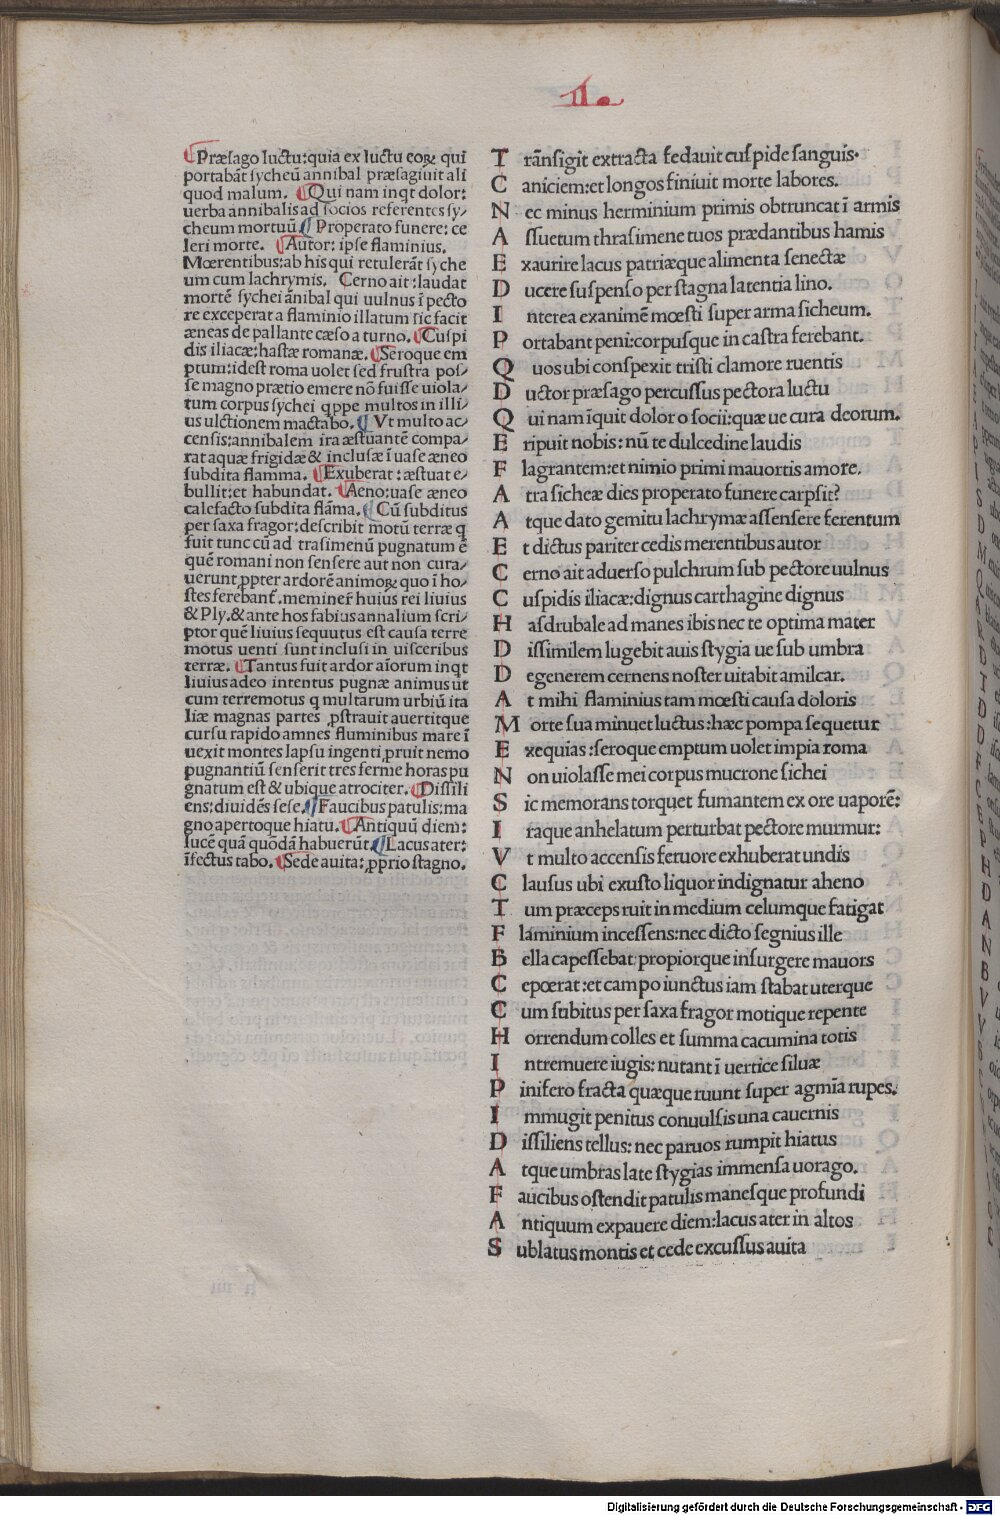 II.
Præsago luctu: quia ex luctu eoꝝ qui
portabāt sycheū annibal præsagiuit ali
quod malum. Qui nam inqt dolor:
uerba annibalis ad socios referentes sy/
cheum mortuū Properato funere: ce
leri morte. Autor: ipse flaminius.
Mœrentibus: ab his qui retulerāt syche
um cum lachrymis. Cerno ait: laudat
mortē sychei ānibal qui uulnus ī pecto
re exceperat a flaminio illatum sic facit
æneas de pallante cæso a turno. Cuspi
dis iliacæ: hastæ romanæ. Seroque em
ptum: idest roma uolet sed frustra pos/
se magno prætio emere nō fuisse uiola/
tum corpus sychei qppe multos in illi/
us ulctionem mactabo. Vt multo ac/
censis: annibalem ira æstuantē compa/
rat aquæ frigidæ & inclusæ ī uase æneo
subdita flamma. Exuberat: æstuat e/
bullit: et habundat. Aeno: uase æneo
calefacto subdita flāma. Cū subditus
per saxa fragor: describit motū terræ q
fuit tunc cū ad trasimenū pugnatum ē
quē romani non sensere aut non cura/
uerunt ꝓpter ardorē animoꝝ quo ī ho/
stes ferebant̄. meminer̄ huius rei liuius
& Ply. & ante hos fabius annalium scri/
ptor quē liuius sequutus est causa terre
motus uenti sunt inclusi in uisceribus
terræ. Tantus fuit ardor aīorum inqt
liuius adeo intentus pugnæ animus ut
cum terremotus q multarum urbiū ita
liæ magnas partes ꝓstrauit auertitque
cursu rapido amnes fluminibus mare ī
uexit montes lapsu ingenti ꝓruit nemo
pugnantiū senserit tres ferme horas pu
gnatum est & ubique atrociter. Dissili
ens: diuidēs sese. Faucibus patulis: ma
gno apertoque hiatu. Antiquū diem:
lucē quā quōdā habuerūt. Lacus ater:
īfectus tabo. Sede auita: ꝓprio stagno.
T rānsigit extracta fedauit cuspide sanguis·
C aniciem: et longos finiuit morte labores.
N ec minus herminium primis obtruncat ī armis
A ssuetum thrasimene tuos prædantibus hamis
E xaurire lacus patriæque alimenta senectæ
D ucere suspenso per stagna latentia lino.
I nterea exanimē mœsti super arma sicheum.
P ortabant peni: corpusque in castra ferebant.
Q uos ubi conspexit tristi clamore ruentis
D uctor præsago percussus pectora luctu
Q ui nam īquit dolor o socii: quæ ue cura deorum.
E ripuit nobis: nū te dulcedine laudis
F lagrantem: et nimio primi mauortis amore.
A tra sicheæ dies properato funere carpsit?
A tque dato gemitu lachrymæ assensere ferentum
E t dictus pariter cedis merentibus autor
C erno ait aduerso pulchrum sub pectore uulnus
C uspidis iliacæ: dignus carthagine dignus
H asdrubale ad manes ibis nec te optima mater
D issimilem lugebit auis stygia ue sub umbra
D egenerem cernens noster uitabit amilcar.
A t mihi flaminius tam mœsti causa doloris
M orte sua minuet luctus: hæc pompa sequetur
E xequias: seroque emptum uolet impia roma
N on uiolasse mei corpus mucrone sichei
S ic memorans torquet fumantem ex ore uaporē:
I raque anhelatum perturbat pectore murmur:
V t multo accensis feruore exhuberat undis
C lausus ubi exusto liquor indignatur aheno
T um præceps ruit in medium celumque fatigat
F laminium incessens: nec dicto segnius ille
B ella capessebat: propiorque insurgere mauors
C epœrat: et campo iunctus iam stabat uterque
C um subitus per saxa fragor motique repente
H orrendum colles et summa cacumina totis
I ntremuere iugis: nutant ī uertice siluæ
P inifero fracta quæque ruunt super agmīa rupes.
I mmugit penitus conuulsis una cauernis
D issiliens tellus: nec paruos rumpit hiatus
A tque umbras late stygias immensa uorago.
F aucibus ostendit patulis manesque profundi
A ntiquum expauere diem: lacus ater in altos
S ublatus montis et cede excussus auita
Digitalisierung gefördert durch die Deutsche Forschungsgemeinschaft - DFG